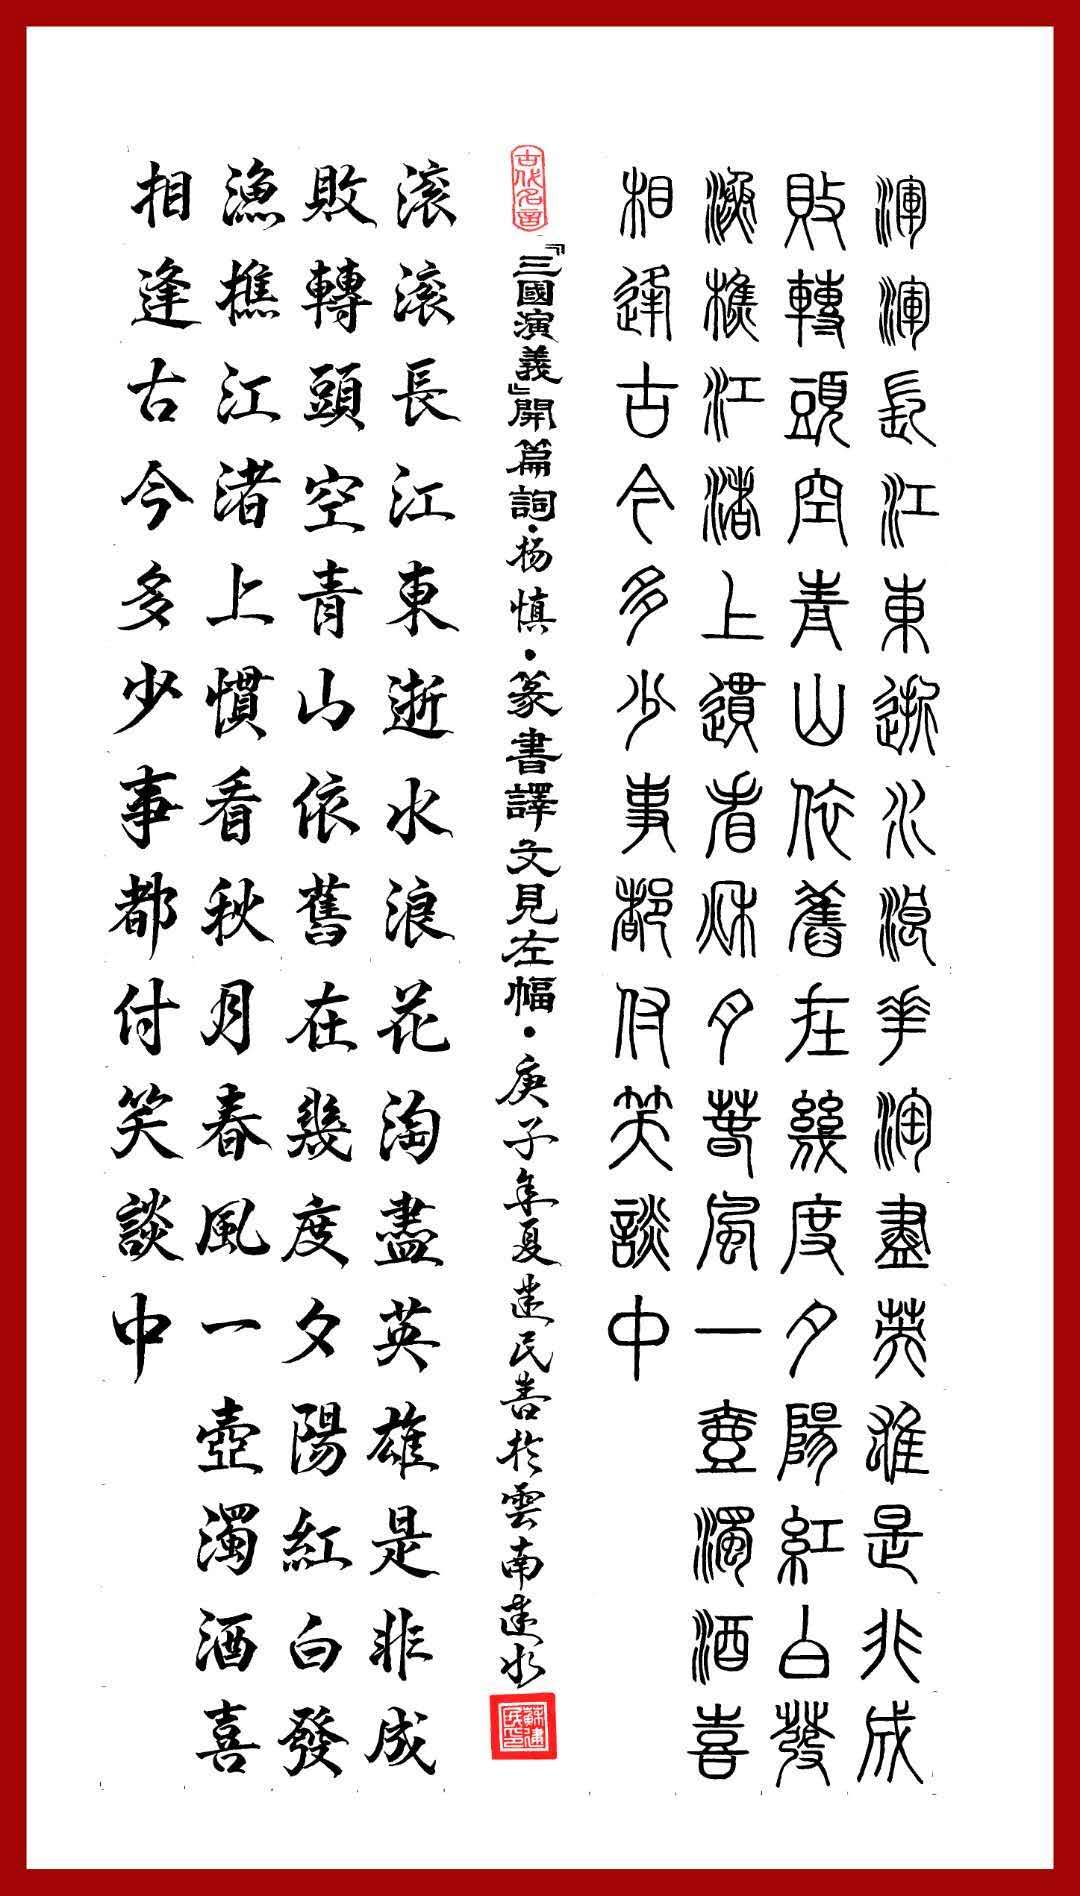 渾渾長江東逝水浪花淘盡英雄是非成
敗轉頭空青山依舊在幾度夕陽紅白發
漁樵江渚上遦看秋月春風一壺濁酒喜
相逢古今多少事都付笑談中
古代名言
『三國演義』開篇詞·杨慎·篆書譯文見左幅·庚子年夏建民書於雲南建水
蘇建民印
滚滚長江東逝水浪花淘盡英雄是非成
敗轉頭空青山依舊在幾度夕陽紅白發
漁樵江渚上慣看秋月春風一壺濁酒喜
相逢古今多少事都付笑談中